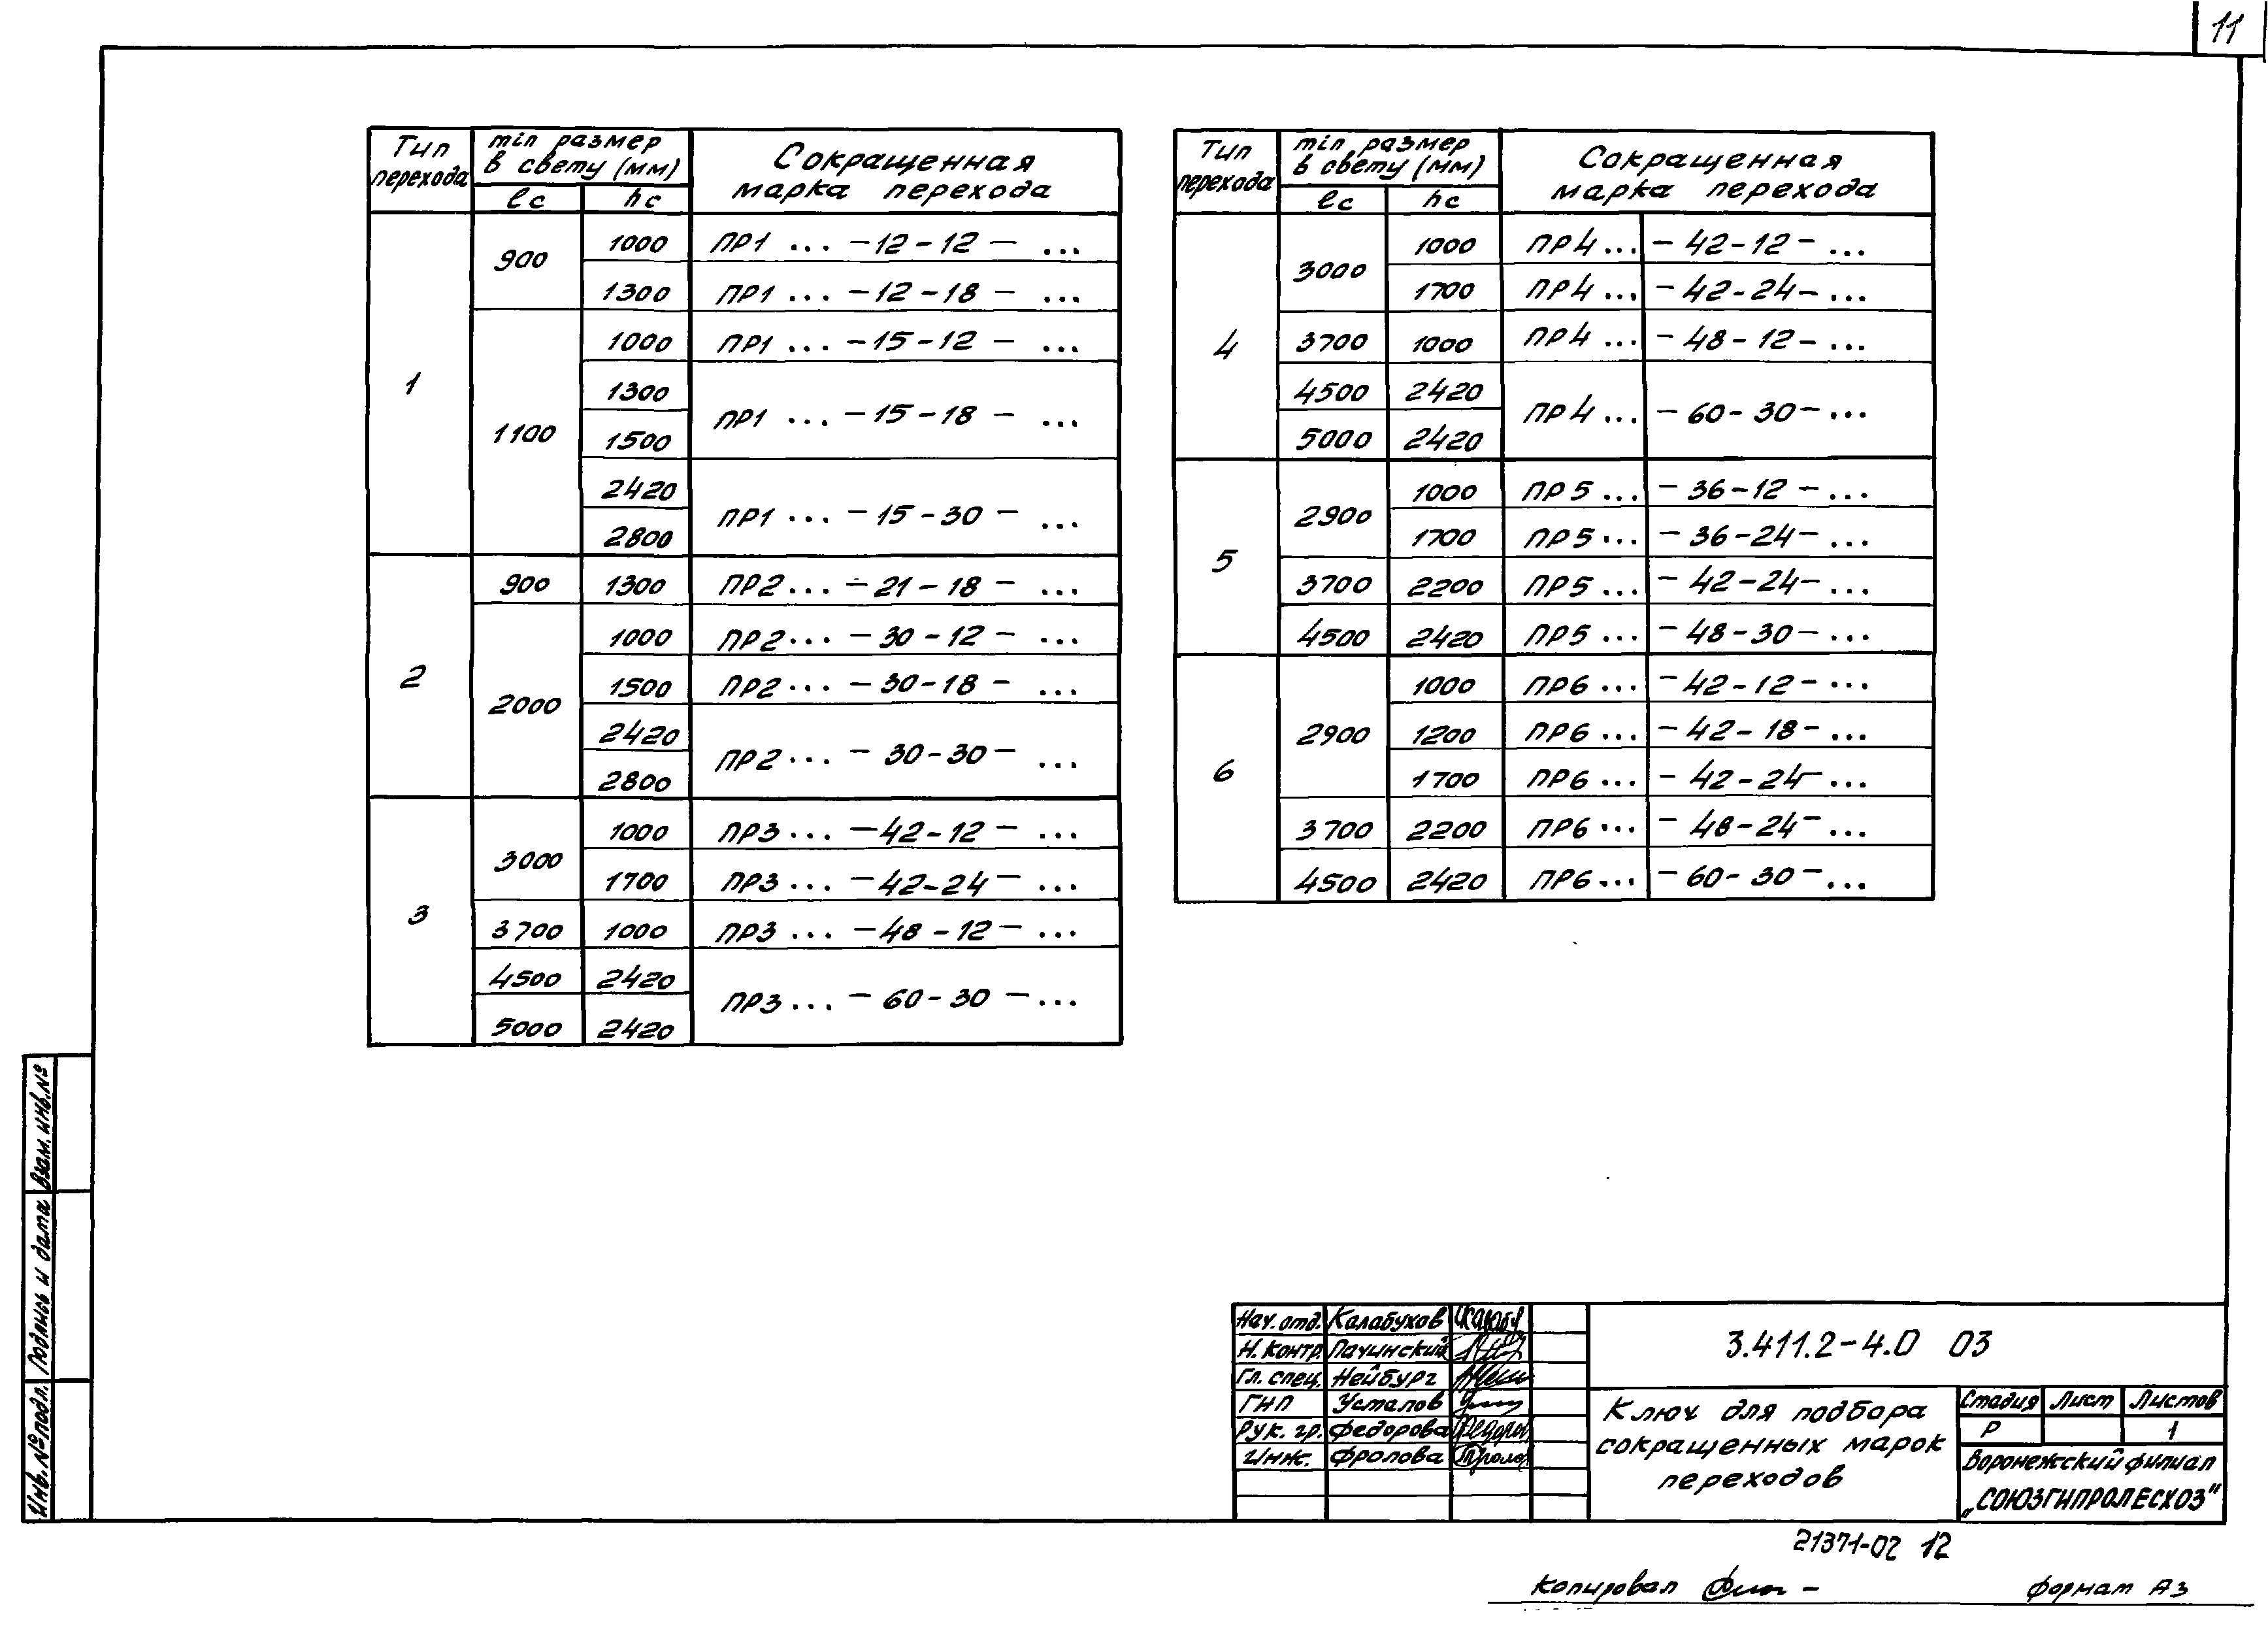 11
Тип перехода | min размер в свету (мм) | Сокращенная марка перехода
ℓс | hс
1 | 900 | 1000 | ПР1 ... – 12 – 12 – ...
1300 | ПР1 ... – 12 – 18 – ...
1100 | 1000 | ПР1 ... – 15 – 12 – ...
1300 | ПР1 ... – 15 – 18 – ...
1500
2420 | ПР1 ... – 15 – 30 – ...
2800
2 | 900 | 1300 | ПР2 ... – 21 – 18 – ...
2000 | 1000 | ПР2 ... – 30 – 12 – ...
1500 | ПР2 ... – 30 – 18 – ...
2420 | ПР2 ... – 30 – 30 – ...
2800
3 | 3000 | 1000 | ПР3 ... – 42 – 12 – ...
1700 | ПР3 ... – 42 – 24 – ...
3700 | 1000 | ПР3 ... – 48 – 12 – ...
4500 | 2420 | ПР3 ... – 60 – 30 – ...
5000 | 2420
Тип перехода | min размер в свету (мм) | Сокращенная марка перехода
ℓс | hс
4 | 3000 | 1000 | ПР4 ... – 42 – 12 – ...
1700 | ПР4 ... – 42 – 24 – ...
3700 | 1000 | ПР4 ... – 48 – 12 – ...
4500 | 2420 | ПР4 ... – 60 – 30 – ...
5000 | 2420
5 | 2900 | 1000 | ПР5 ... – 36 – 12 – ...
1700 | ПР5 ... – 36 – 24 – ...
3700 | 2200 | ПР5 ... – 42 – 24 – ...
4500 | 2420 | ПР5 ... – 48 – 30 – ...
6 | 2900 | 1000 | ПР6 ... – 42 – 12 – ...
1200 | ПР6 ... – 42 – 18 – ...
1700 | ПР6 ... – 42 – 24 – ...
3700 | 2200 | ПР6 ... – 48 – 24 – ...
4500 | 2420 | ПР6 ... – 60 – 30 – ...
Взам. инв. №
Подпись и дата
Инв. № подл.
Нач. отд. Калабухов
Н. контр. Пачинский
Гл. спец. Нейбург
ГИП Усталов
Рук. гр. Федорова
Инж. Фролова
3.411.2-4.0 03
Ключ для подбора
сокращенных марок
переходов
Стадия Лист Листов
Р 1
Воронежский филиал
„СОЮЗГИПРОЛЕСХОЗ"
21371-02 12
Копировал
Формат А3